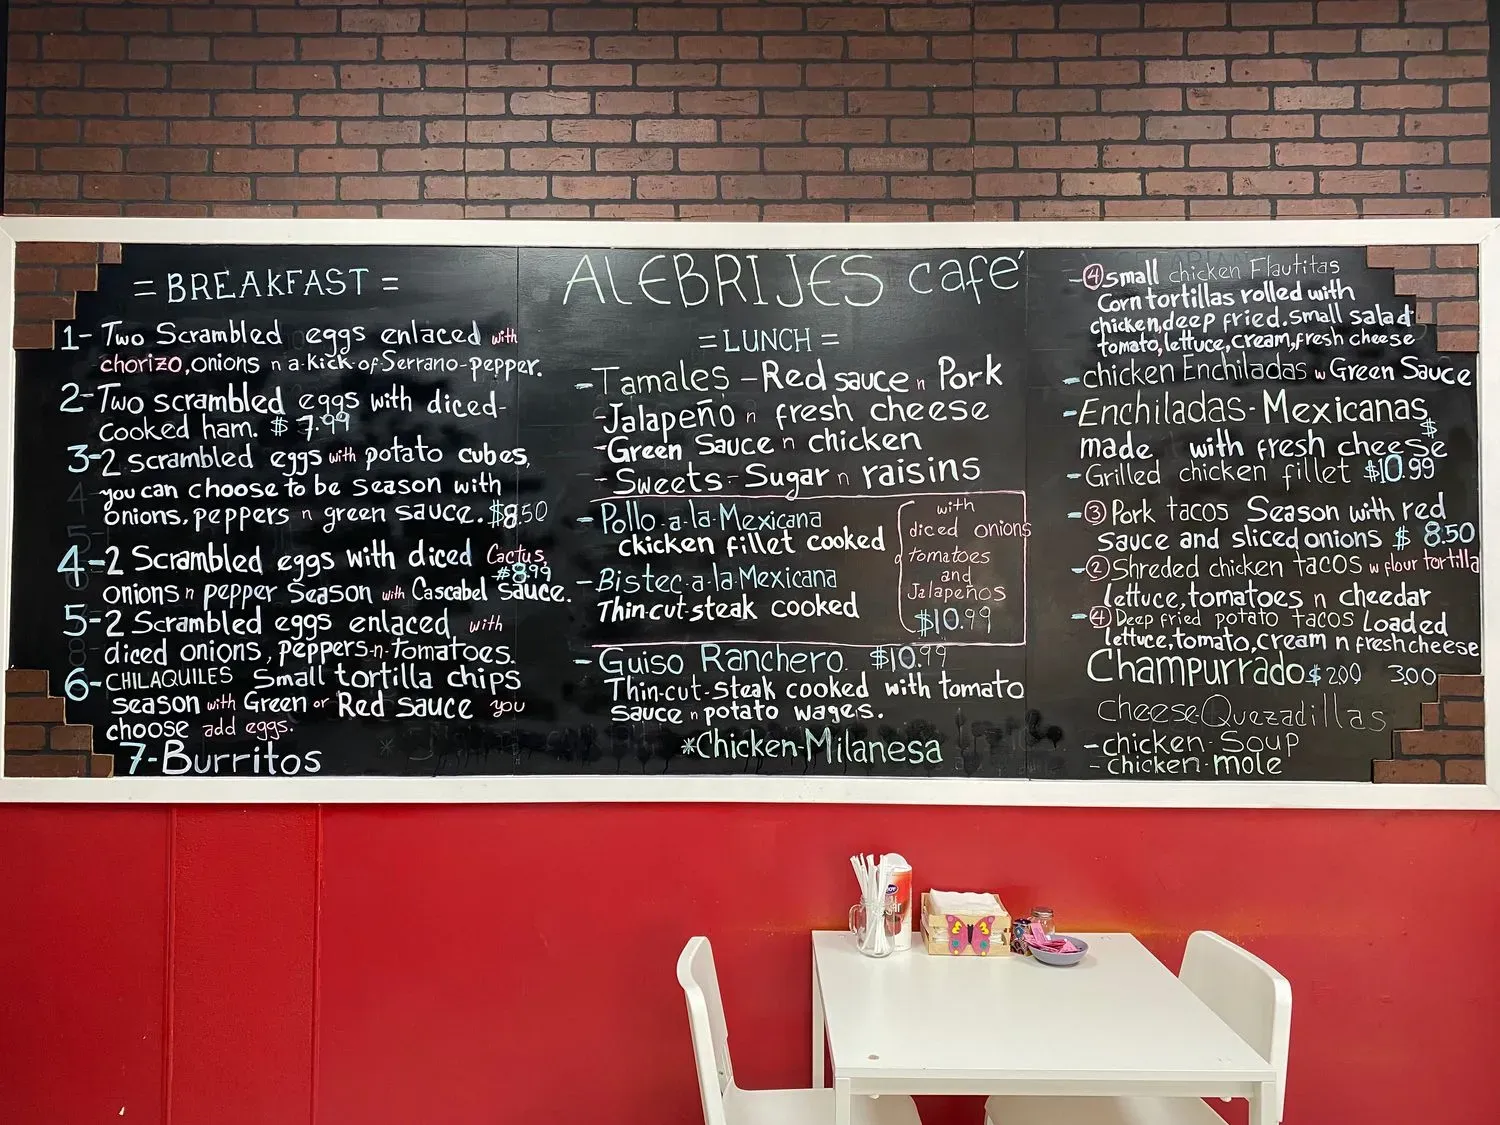 = BREAKFAST =
1- Two Scrambled eggs enlaced with
chorizo, onions n a-kick-of-Serrano-pepper.
2-Two scrambled eggs with diced-
cooked ham. $ 7.99
3-2 scrambled eggs with potato cubes,
you can choose to be season with
onions, peppers n green sauce. $8.50
4-2 Scrambled eggs with diced Cactus,
$8.99
onions n pepper Season with Cascabel sauce.
5-2 Scrambled eggs enlaced with
diced onions, peppers-n-tomatoes.
6-CHILAQUILES Small tortilla chips
season with Green or Red sauce you
choose add eggs.
7-Burritos
ALEBRIJES café
= LUNCH =
-Tamales - Red sauce n Pork
-Jalapeño n fresh cheese
-Green Sauce n chicken
-Sweets-Sugar n raisins
-Pollo-a-la-Mexicana
ckicken fillet cooked
-Bistec-a-la-Mexicana
Thin-cut-steak cooked
with
diced onions
tomatoes
and
Jalapeños
$10.99
-Guiso Ranchero. $10.99
Thin-cut-steak cooked with tomato
sauce n potato wages.
*Chicken-Milanesa
-4 small chicken Flautitas
Corn tortillas rolled with
chicken, deep fried. small salad
tomato, lettuce, cream, fresh cheese
-chicken Enchiladas w Green Sauce
-Enchiladas-Mexicanas
$
made with fresh cheese
-Grilled chicken fillet $10.99
-3 Pork tacos Season with red
sauce and sliced onions $ 8.50
-2 Shreded chicken tacos w flour tortilla
lettuce, tomatoes n chedar
-4 Deep fried potato tacos Loaded
lettuce, tomato, cream n fresh cheese
Champurrado $ 2.00 3.00
cheese-Quezadillas
-chicken-Soup
-chicken-mole